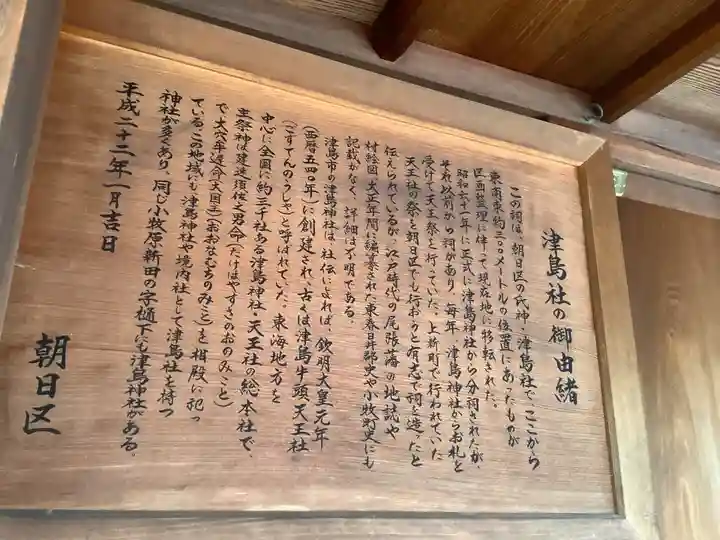 津島社の御由緒
この祠は、朝日区の氏神・津島社で、ここから
東南東約三〇〇メートルの位置にあったものが
区画整理に伴って現在地に移転された。
昭和六十一年に正式に津島神社から分祠されたが、
それ以前から祠があり、毎年、津島神社からお札を
受けて天王祭を行っていた。上新町で行われていた
天王社の祭を朝日区でも行おうと有志で祠を造ったと
伝えられているが、江戸時代の尾張藩の地誌や
村絵図、大正年間に編纂された東春日井郡史や小牧町史にも
記載がなく、詳細は不明である。
津島市の津島神社は、社伝によれば、欽明天皇元年
(西暦五四〇年)に創建され、古くは津島牛頭天王社
(ごずてんのうしゃ)と呼ばれていた。東海地方を
中心に全国に約三千社ある津島神社・天王社の総本社で、
主祭神は建速須佐之男命(たけはやすさのおのみこと)
で大穴牟遅命(大国主)(おおなむちのみこと)を相殿に祀っ
ている。この地域にも津島神社や境内社として津島社を持つ
神社が多くあり、同じ小牧原新田の字樋下にも津島神社がある。
平成二十二年一月吉日
朝日区